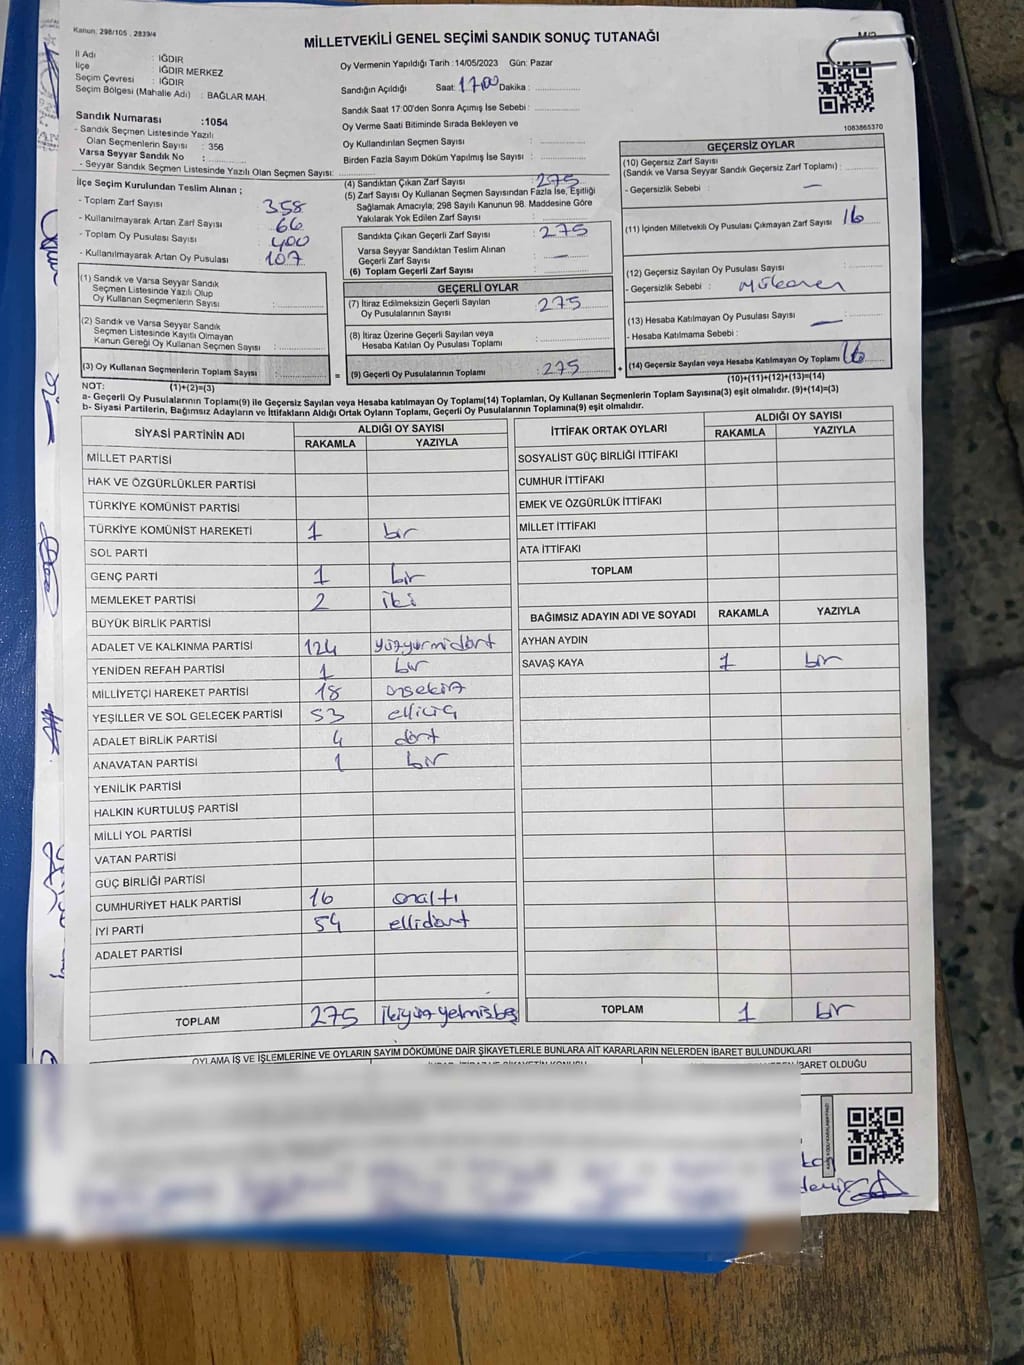 Kanun: 298/105 , 2839/4
MİLLETVEKİLİ GENEL SEÇİMİ SANDIK SONUÇ TUTANAĞI
İl Adı : IĞDIR
İlçe : IĞDIR MERKEZ
Seçim Çevresi : IĞDIR
Seçim Bölgesi (Mahalle Adı) : BAĞLAR MAH.
Sandık Numarası :1054
- Sandık Seçmen Listesinde Yazılı
Olan Seçmenlerin Sayısı : 356
Varsa Seyyar Sandık No :
- Seyyar Sandık Seçmen Listesinde Yazılı Olan Seçmen Sayısı:
İlçe Seçim Kurulundan Teslim Alınan ;
- Toplam Zarf Sayısı 358
- Kullanılmayarak Artan Zarf Sayısı 66
- Toplam Oy Pusulası Sayısı 400
- Kullanılmayarak Artan Oy Pusulası 107
(1) Sandık ve Varsa Seyyar Sandık
Seçmen Listesinde Yazılı Olup
Oy Kullanan Seçmenlerin Sayısı :
(2) Sandık ve Varsa Seyyar Sandık
Seçmen Listesinde Kayıtlı Olmayan
Kanun Gereği Oy Kullanan Seçmen Sayısı :
(3) Oy Kullanan Seçmenlerin Toplam Sayısı :
(1)+(2)=(3)
Oy Vermenin Yapıldığı Tarih :14/05/2023 Gün: Pazar
Sandığın Açıldığı Saat: 17:00 Dakika :
Sandık Saat 17:00'den Sonra Açımış İse Sebebi :
Oy Verme Saati Bitiminde Sırada Bekleyen ve
Oy Kullandırılan Seçmen Sayısı :
Birden Fazla Sayım Döküm Yapılmış İse Sayısı :
(4) Sandıktan Çıkan Zarf Sayısı : 275
(5) Zarf Sayısı Oy Kullanan Seçmen Sayısından Fazla İse, Eşitliği
Sağlamak Amacıyla; 298 Sayılı Kanunun 98. Maddesine Göre
Yakılarak Yok Edilen Zarf Sayısı :
Sandıkta Çıkan Geçerli Zarf Sayısı : 275
Varsa Seyyar Sandıktan Teslim Alınan
Geçerli Zarf Sayısı : —
(6) Toplam Geçerli Zarf Sayısı :
GEÇERLİ OYLAR
(7) İtiraz Edilmeksizin Geçerli Sayılan
Oy Pusulalarının Sayısı : 275
(8) İtiraz Üzerine Geçerli Sayılan veya
Hesaba Katılan Oy Pusulası Toplamı :
= (9) Geçerli Oy Pusulalarının Toplamı : 275
1083865370
GEÇERSİZ OYLAR
(10) Geçersiz Zarf Sayısı
(Sandık ve Varsa Seyyar Sandık Geçersiz Zarf Toplamı) :
- Geçersizlik Sebebi : —
(11) İçinden Milletvekili Oy Pusulası Çıkmayan Zarf Sayısı : 16
(12) Geçersiz Sayılan Oy Pusulası Sayısı :
- Geçersizlik Sebebi :
(13) Hesaba Katılmayan Oy Pusulası Sayısı : —
- Hesaba Katılmama Sebebi :
+ (14) Geçersiz Sayılan veya Hesaba Katılmayan Oy Toplamı : 16
(10)+(11)+(12)+(13)=(14)
NOT:
a- Geçerli Oy Pusulalarının Toplamı(9) ile Geçersiz Sayılan veya Hesaba katılmayan Oy Toplamı(14) Toplamları, Oy Kullanan Seçmenlerin Toplam Sayısına(3) eşit olmalıdır. (9)+(14)=(3)
b- Siyasi Partilerin, Bağımsız Adayların ve İttifakların Aldığı Ortak Oyların Toplamı, Geçerli Oy Pusulalarının Toplamına(9) eşit olmalıdır.
SİYASİ PARTİNİN ADI ALDIĞI OY SAYISI
RAKAMLA YAZIYLA
MİLLET PARTİSİ
HAK VE ÖZGÜRLÜKLER PARTİSİ
TÜRKİYE KOMÜNİST PARTİSİ
TÜRKİYE KOMÜNİST HAREKETİ 1 bir
SOL PARTİ
GENÇ PARTİ 1 bir
MEMLEKET PARTİSİ 2 iki
BÜYÜK BİRLİK PARTİSİ
ADALET VE KALKINMA PARTİSİ 124 yüzyirmidört
YENİDEN REFAH PARTİSİ 1 bir
MİLLİYETÇİ HAREKET PARTİSİ 18 onsekiz
YEŞİLLER VE SOL GELECEK PARTİSİ 53 elliüç
ADALET BİRLİK PARTİSİ 4 dört
ANAVATAN PARTİSİ 1 bir
YENİLİK PARTİSİ
HALKIN KURTULUŞ PARTİSİ
MİLLİ YOL PARTİSİ
VATAN PARTİSİ
GÜÇ BİRLİĞİ PARTİSİ
CUMHURİYET HALK PARTİSİ 16 onaltı
İYİ PARTİ 54 ellidört
ADALET PARTİSİ
TOPLAM 275 ikiyüzyetmişbeş
İTTİFAK ORTAK OYLARI ALDIĞI OY SAYISI
RAKAMLA YAZIYLA
SOSYALİST GÜÇ BİRLİĞİ İTTİFAKI
CUMHUR İTTİFAKI
EMEK VE ÖZGÜRLÜK İTTİFAKI
MİLLET İTTİFAKI
ATA İTTİFAKI
TOPLAM
BAĞIMSIZ ADAYIN ADI VE SOYADI RAKAMLA YAZIYLA
AYHAN AYDIN
SAVAŞ KAYA 1 bir
TOPLAM 1 bir
OYLAMA İŞ VE İŞLEMLERİNE VE OYLARIN SAYIM DÖKÜMÜNE DAİR ŞİKAYETLERLE BUNLARA AİT KARARLARIN NELERDEN İBARET BULUNDUKLARI
BARET OLDUĞU